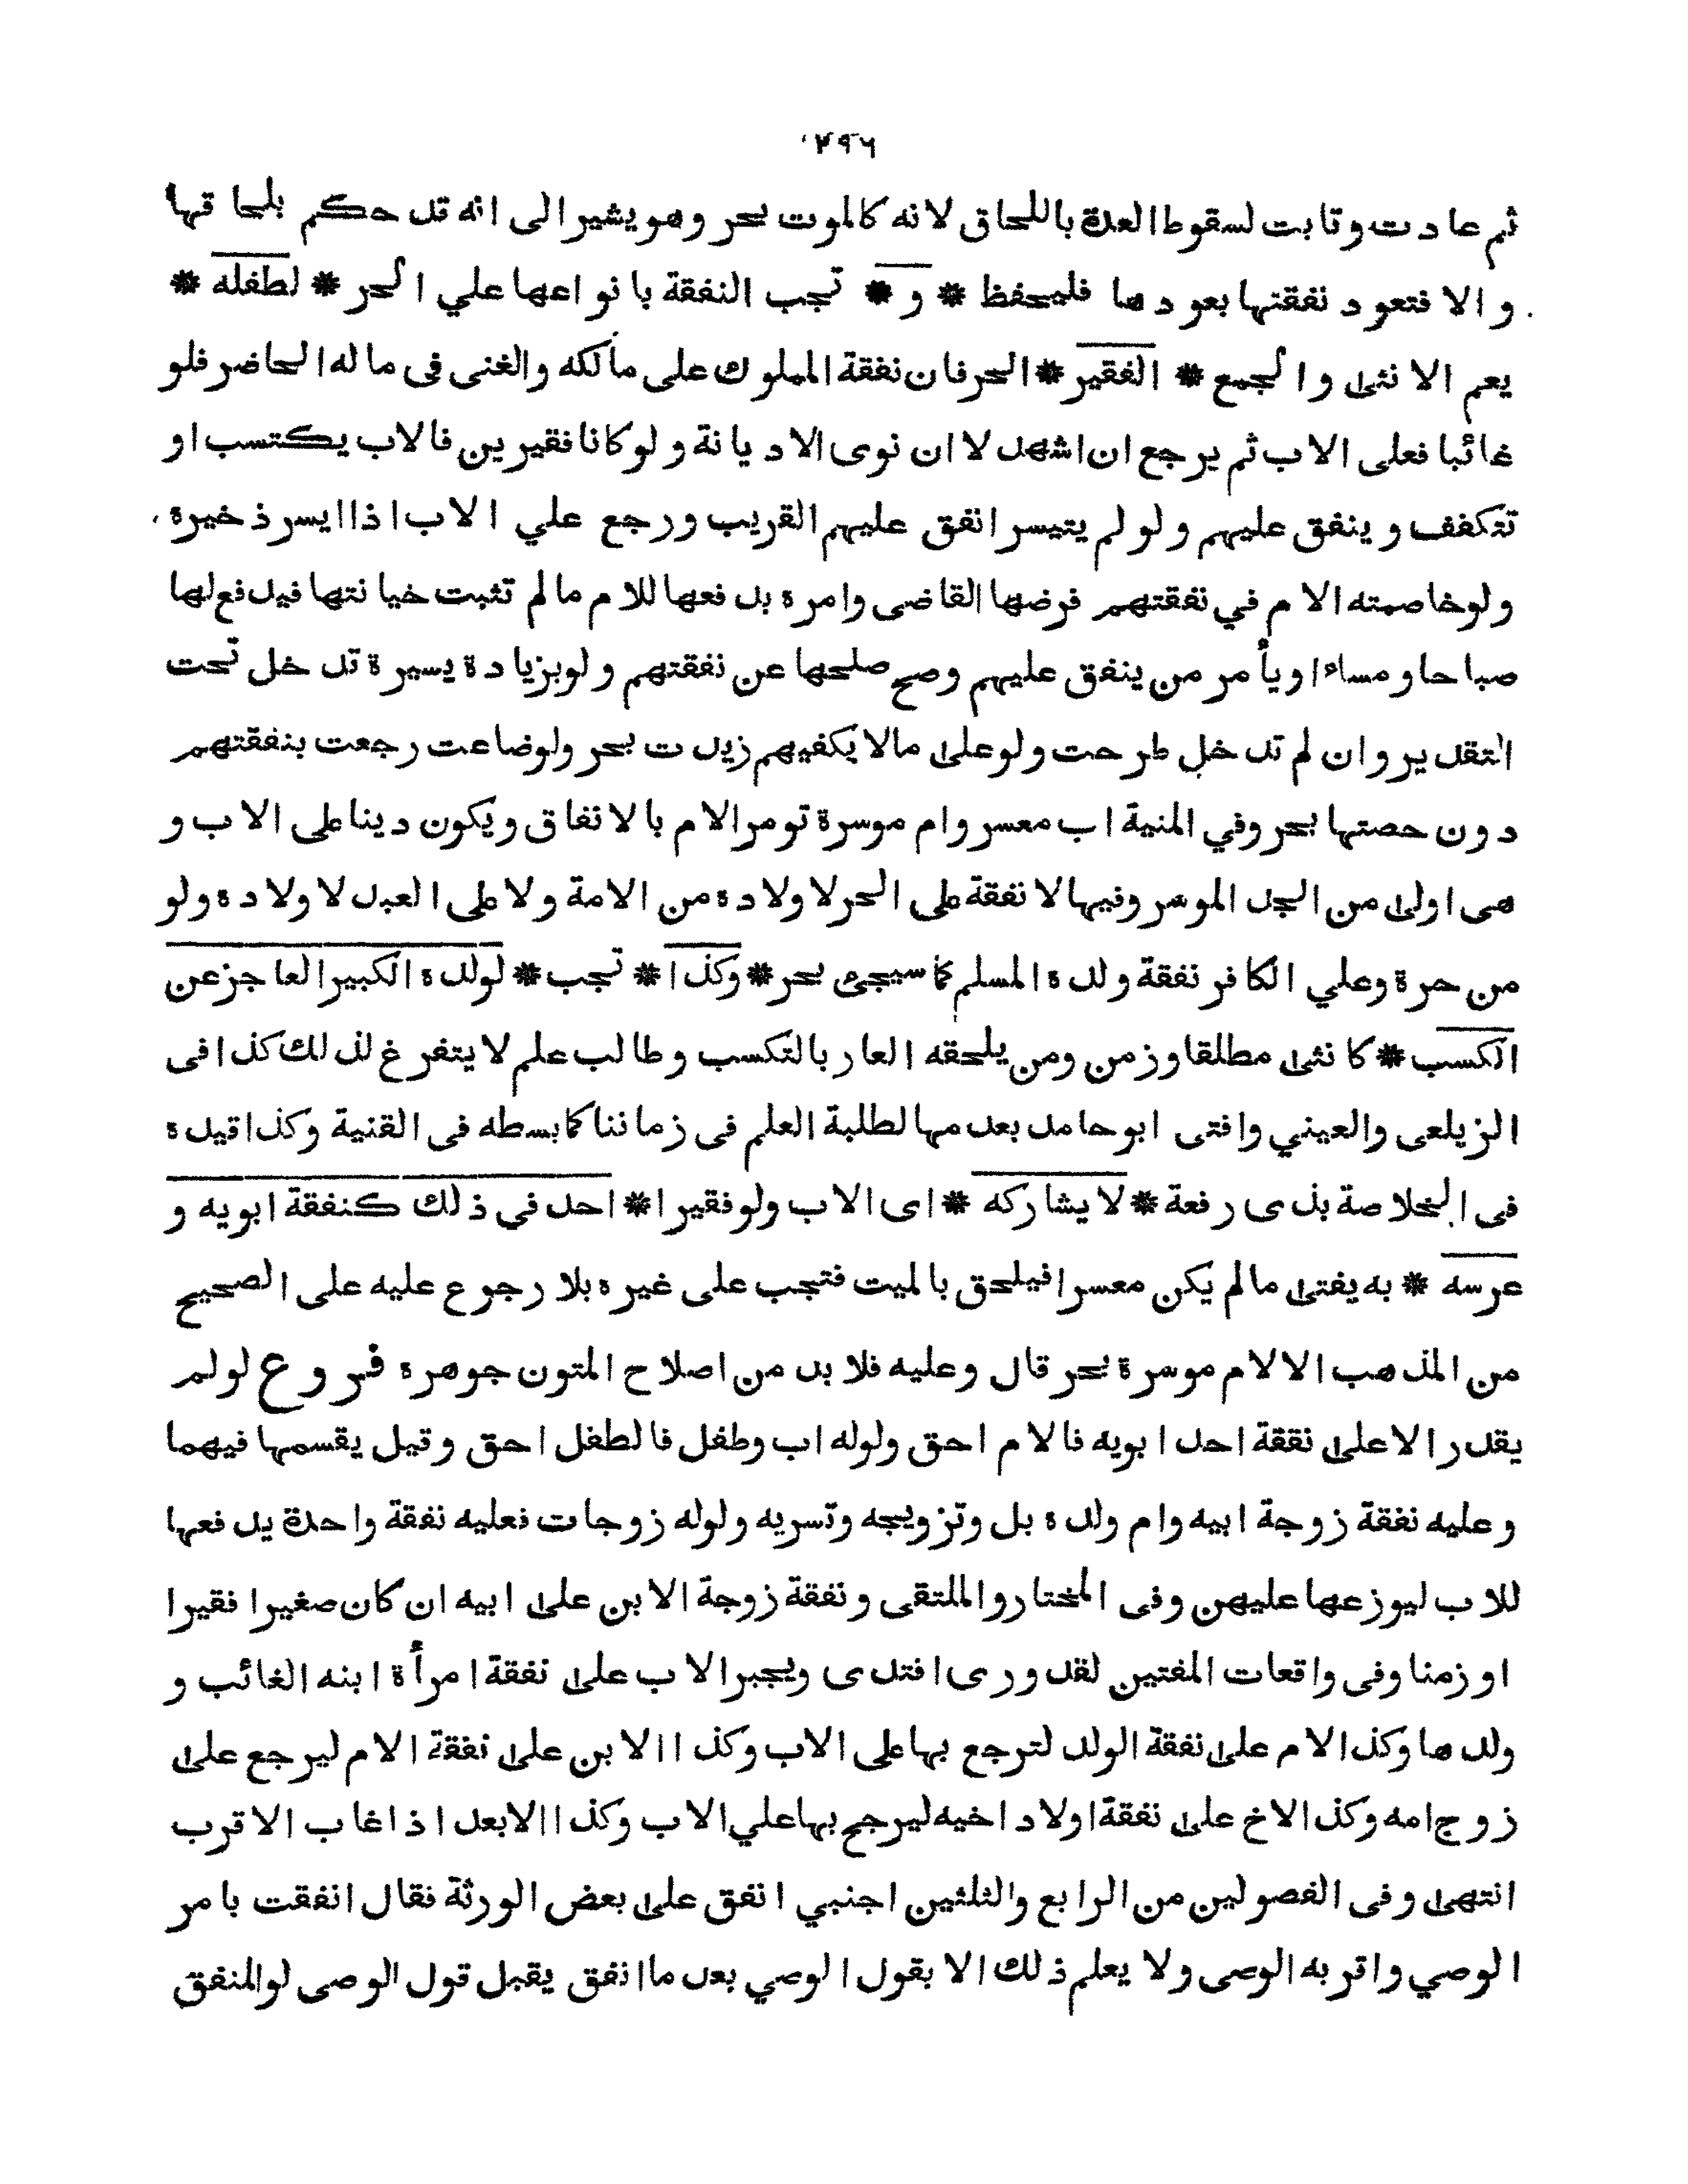 ٢٩٦
ثم عادت وتابت لسقوط العدة باللحاق لانه كالموت بحر وهو يشير الى انه قد حكم بلحاقها
والا فتعود نفقتها بعودها فليحفظ * و * تجب النفقة بانواعها علي الحر * لطفله *
يعم الانثى والجمع * الفقير * الحر فان نفقة المملوك على مالكه والغنى فى ماله الحاضر فلو
غائبا فعلى الاب ثم يرجع ان اشهد لا ان نوى الا ديانة ولو كانا فقيرين فالاب يكتسب او
تتكفف وينفق عليهم ولو لم يتيسر انفق عليهم القريب ورجع علي الاب اذا ايسر ذخيرة
ولو خاصمته الام في نفقتهم فرضها القاضى وامره بدفعها للام مالم تثبت خيانتها فيدفع لها
صباحا ومساءا ويأمر من ينفق عليهم وصح صلحها عن نفقتهم ولو بزيادة يسيرة تدخل تحت
التقدير وان لم تدخل طرحت ولو على مالا يكفيهم زيدت بحر ولو ضاعت رجعت بنفقتهم
دون حصتها بحر وفي المنية اب معسر وام موسرة تومر الام بالانفاق ويكون دينا على الاب و
هى اولى من الجد الموسر وفيها لا نفقة على الحر لاولاده من الامة ولا على العبد لاولاده ولو
من حرة وعلي الكافر نفقة ولده المسلم كما سيجئ بحر * وكذا * تجب * لولده الكبير العاجز عن
الكسب * كانثى مطلقا وزمن ومن يلحقه العار بالتكسب وطالب علم لا يتفرغ لذلك كذا فى
الزيلعى والعيني وافتى ابو حامد بعدمها لطلبة العلم فى زماننا كما بسطه فى القنية وكذا قيده
فى الخلاصة بذى رفعة * لا يشاركه * اى الاب ولو فقيرا * احد في ذلك كنفقة ابويه و
عرسه * به يفتى مالم يكن معسرا فيلحق بالميت فتجب على غيره بلا رجوع عليه على الصحيح
من المذهب الا لام موسرة بحر قال وعليه فلا بد من اصلاح المتون جوهره فروع لو لم
يقدر الا على نفقة احد ابويه فالام احق ولو له اب وطفل فالطفل احق وقيل يقسمها فيهما
وعليه نفقة زوجة ابيه وام ولده بل وتزويجه وتسريه ولو له زوجات فعليه نفقة واحدة يدفعها
للاب ليوزعها عليهن وفى المختار والملتقى ونفقة زوجة الابن على ابيه ان كان صغيرا فقيرا
او زمنا وفى واقعات المفتين لقدورى افتدى ويجبر الاب على نفقة امرأة ابنه الغائب و
ولدها وكذا الام على نفقة الولد لترجع بها على الاب وكذا الابن على نفقة الام ليرجع على
زوج امه وكذا الاخ على نفقة اولاد اخيه ليرجع بها علي الاب وكذا الابعد اذا غاب الاقرب
انتهى وفى الفصولين من الرابع والثلثين اجنبي انفق على بعض الورثة فقال انفقت بامر
الوصي واقر به الوصى ولا يعلم ذلك الا بقول الوصي بعد ما انفق يقبل قول الوصى لو المنفق